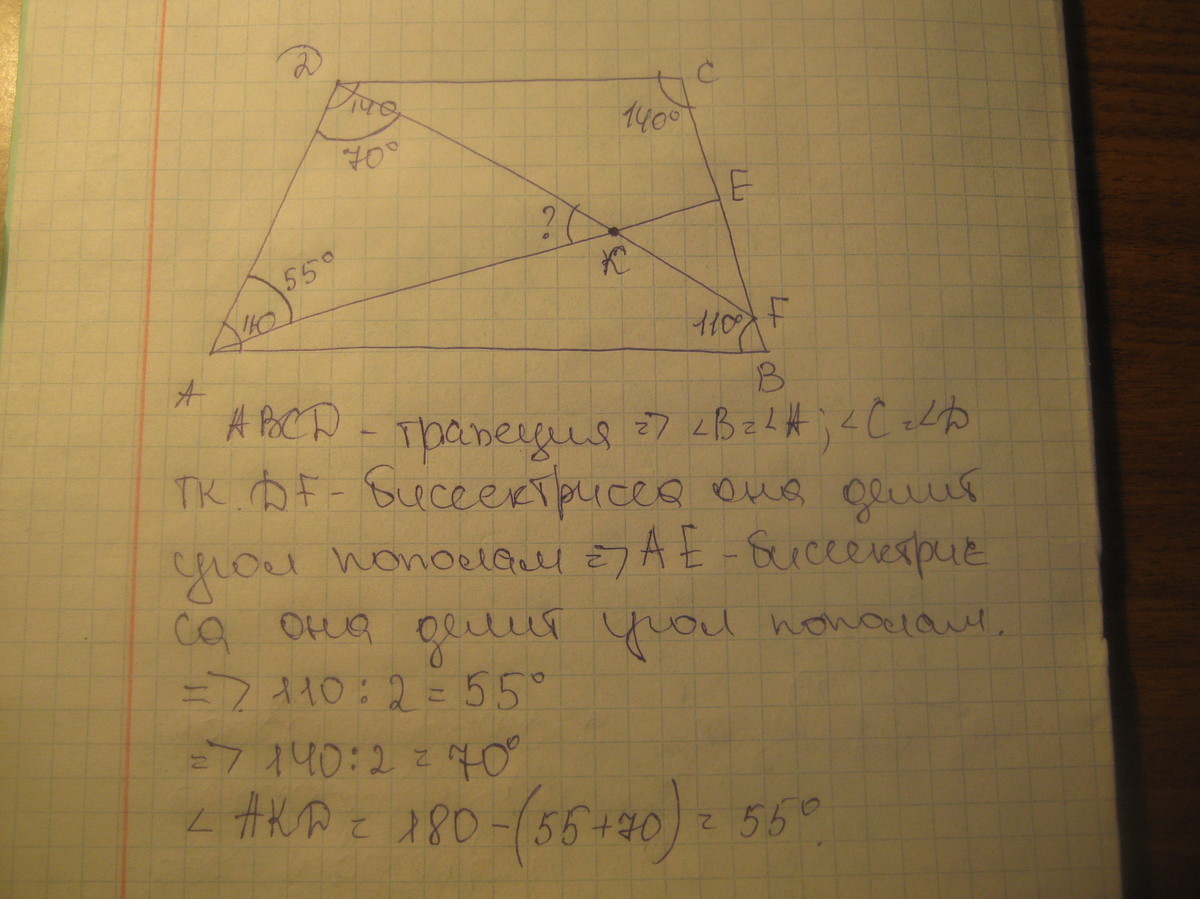 D C
140 140°
70°
E
?
K
55°
110 110° F
A B
ABCD - трапеция => ∠B=∠A; ∠C=∠D
тк. DF - биссектрисса она делит
угол пополам => AE - биссектрис
са она делит угол пополам.
=> 110:2=55°
=> 140:2=70°
∠AKD = 180-(55+70)=55°.